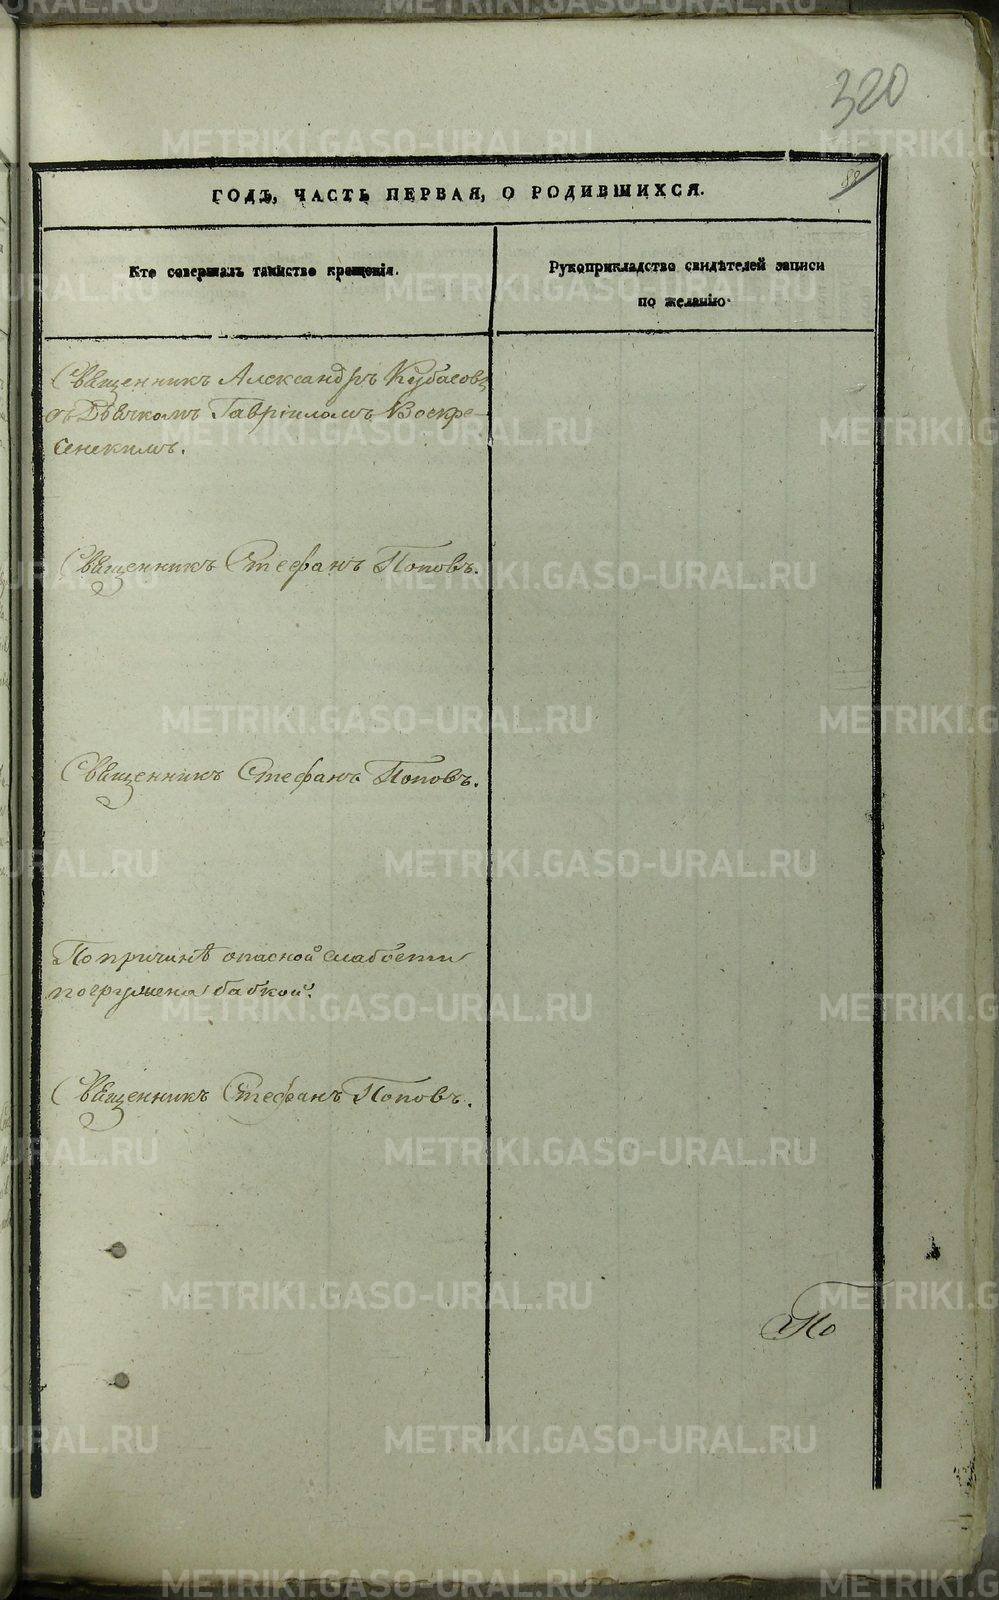 320
88
ГОДЪ, ЧАСТЬ ПЕРВАЯ, О РОДИВШИХСЯ.
Кто совершалъ таинство крещенія.
Рукоприкладство свидѣтелей записи
по желанію
Священникъ Александръ Кубасовъ
съ Дьячкомъ Гавріиломъ Воскре-
сенскимъ.
Священникъ Стефанъ Поповъ.
Священникъ Стефанъ Поповъ.
По причинѣ опасной слабости
погружена бабкой.
Священникъ Стефанъ Поповъ.
По
METRIKI.GASO-URAL.RU